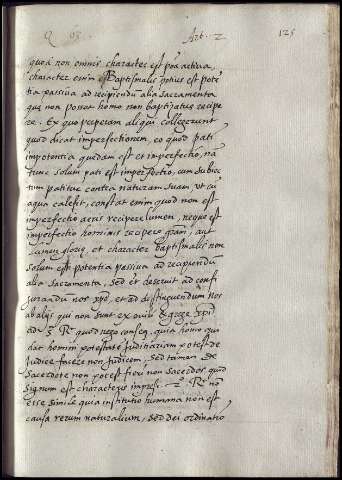 Q 63. Art. 2 125
quod non omnis character est poa activa,
character enim Baptismalis potius est potē
tia passiva ad recipiendū alia sacramenta
que non posset homo non baptizatus recipe
re. Ex quo perperam aliqui collegerunt
quod dicat imperfectionem, eo quod pati
impotentia quedam est et imperfectio, nā
tunc solum pati est imperfectio, cum subiec
tum patitur contra naturam suam, ut cū
aqua calefit, constat enim quod non est
imperfectio aeris recipere lumen, neque est
imperfectio hominis recipere gratā, aut
lumen glorie, et character baptismalis non
solum est potentia passiva ad recipiendū
alia sacramenta, sed et deservit ad confi
gurandū nos xpō, et ad distinguendum nos
ab alijs qui non sunt ex ovili & grege xpi
ad 3 Rr quod nego conseq. quia homo qui
dat homini potestatē iudiciariam potest de
Iudice facere non Iudicem, sed tamen de
sacerdote non potest fieri non sacerdos quod
signum est characteris impressi. Rr nō
esse simile quia institutio humana non est
causa rerum naturalium, sed dei ordinatio